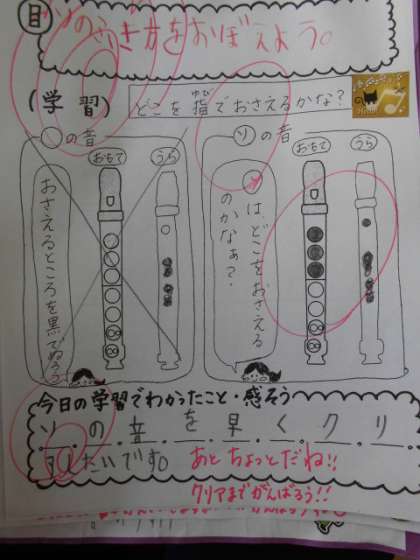 目
ソのふき方をおぼえよう。
(学習)
どこを指でおさえるかな?
ゆび
の音
おもて
うら
おさえるところを黒でぬろう
ソの音
おもて
うら
はどこをおさえる
のかなぁ?
今日の学習でわかったこと・感そう
ソの音を早くクリ
アしたいです。
あとちょっとだね!!
クリアまでがんばろう!!